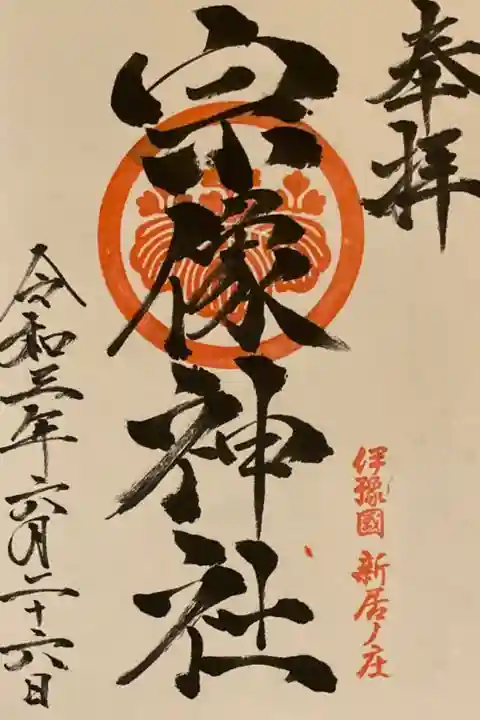 奉拝
宗像神社
伊豫國 新居ノ庄
令和三年六月二十六日